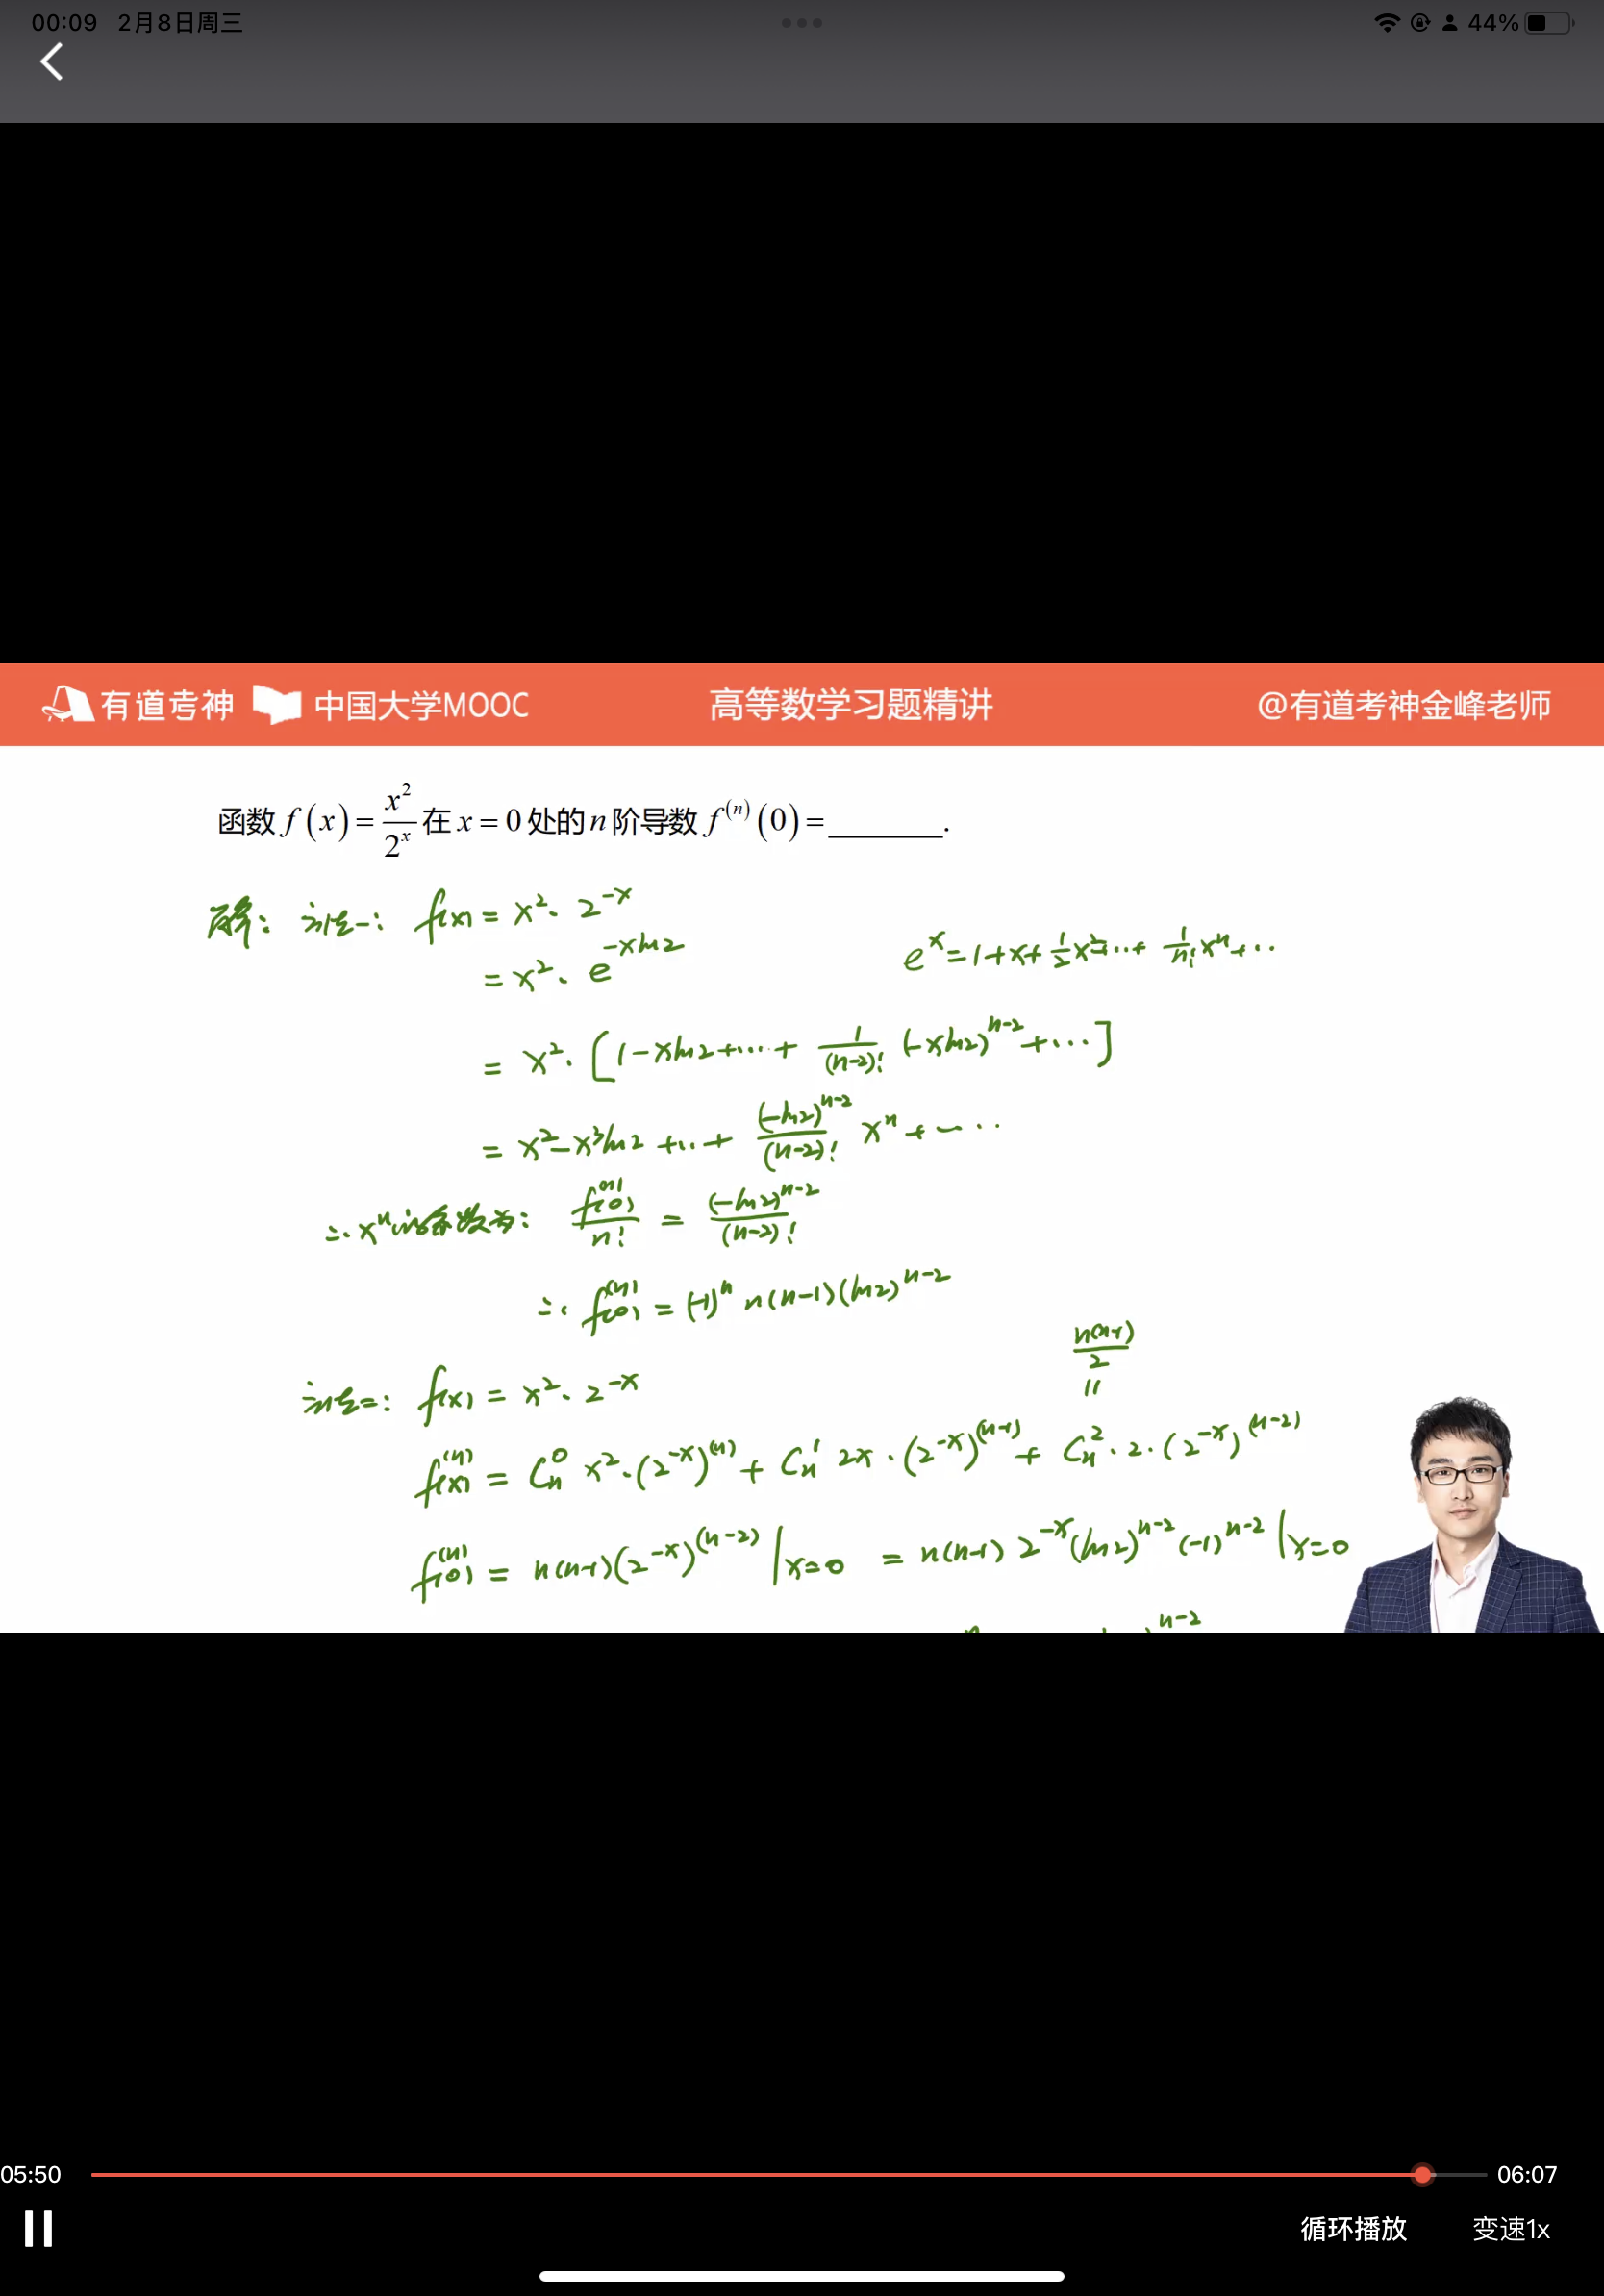 00:09 2月8日周三
44%
有道考神 中国大学MOOC 高等数学习题精讲 @有道考神金峰老师
函数 f(x) = x²/2ˣ 在 x = 0 处的 n 阶导数 f⁽ⁿ⁾(0) = ________.
解: 方法一: f(x) = x²·2^(-x)
= x²·e^(-xln2)
eˣ = 1+x+½x²+…+ 1/n! xⁿ+…
= x²·[1-xln2+…+ 1/(n-2)! (-xln2)^(n-2) +…]
= x²-x³ln2+…+ (-ln2)^(n-2)/(n-2)! xⁿ+…
∴ xⁿ的系数为: f⁽ⁿ⁾(0)/n! = (-ln2)^(n-2)/(n-2)!
∴ f⁽ⁿ⁾(0) = (-1)ⁿ n(n-1)(ln2)^(n-2)
n(n-1)/2
=
方法二: f(x) = x²·2^(-x)
f⁽ⁿ⁾(x) = Cn⁰ x²·(2^(-x))^(n) + Cn¹ 2x·(2^(-x))^(n-1) + Cn²·2·(2^(-x))^(n-2)
f⁽ⁿ⁾(0) = n(n-1)(2^(-x))^(n-2)|x=0 = n(n-1) 2^(-x)(ln2)^(n-2)(-1)^(n-2)|x=0
n-2
05:50 06:07
循环播放 变速1x